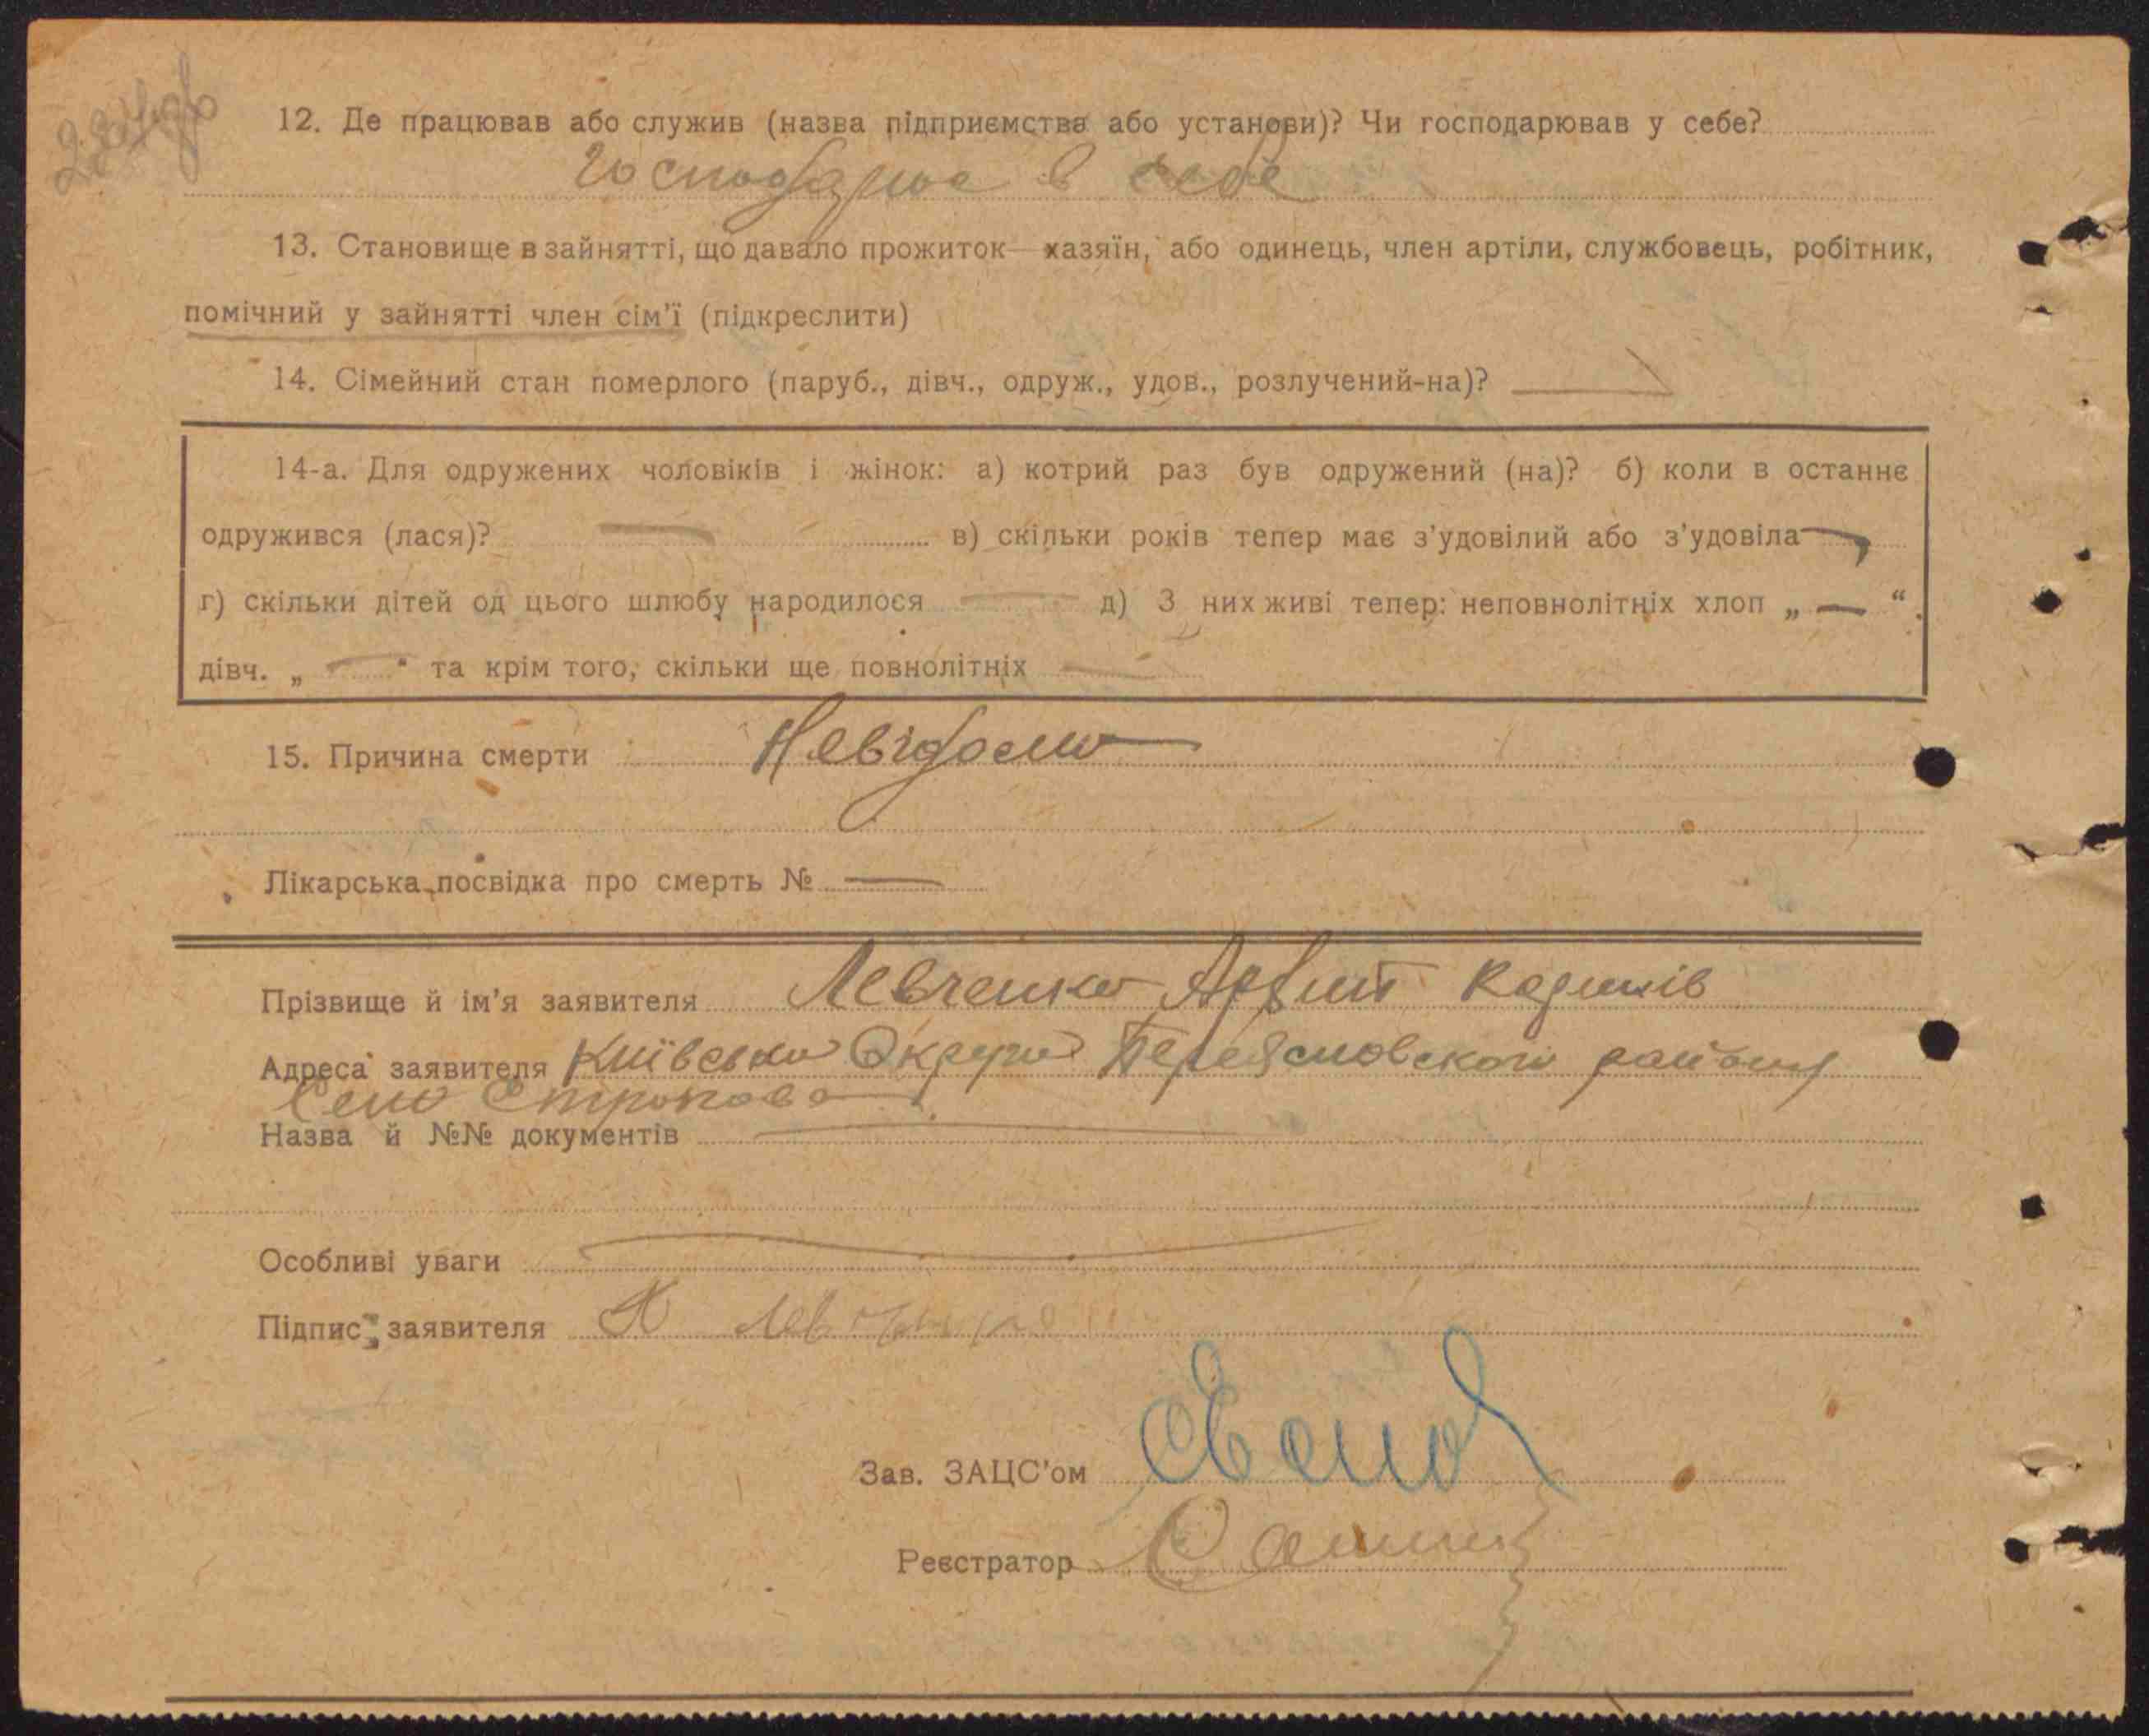 12. Де працював або служив (назва підприємства або установи)? Чи господарював у себе?
господарює в себе
13. Становище в зайнятті, що давало прожиток—хазяїн, або одинець, член артіли, службовець, робітник,
помічний у зайнятті член сім'ї (підкреслити)
14. Сімейний стан померлого (паруб., дівч., одруж., удов., розлучений-на)?
14-а. Для одружених чоловіків і жінок: а) котрий раз був одружений (на)? б) коли в останнє
одружився (лася)? — в) скільки років тепер має з'удовілий або з'удовіла —
г) скільки дітей од цього шлюбу народилося — д) З них живі тепер: неповнолітніх хлоп „ — “.
дівч. „ — “ та крім того, скільки ще повнолітніх —
15. Причина смерти Невідомо
Лікарська посвідка про смерть № —
Прізвище й ім'я заявителя Левченко
Адреса заявителя Київсько Округи Переясловского району
Село Строкова
Назва й №№ документів —
Особливі уваги —
Підпис заявителя Левченко
Зав. ЗАЦС'ом
Реєстратор